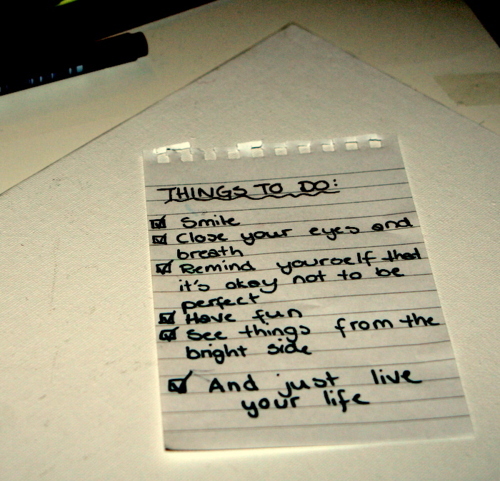 THINGS TO DO:
Smile
Close your eyes and
breath
Remind yourself that
it's okay not to be
perfect
Have fun
See things from the
bright side
And just live
your life